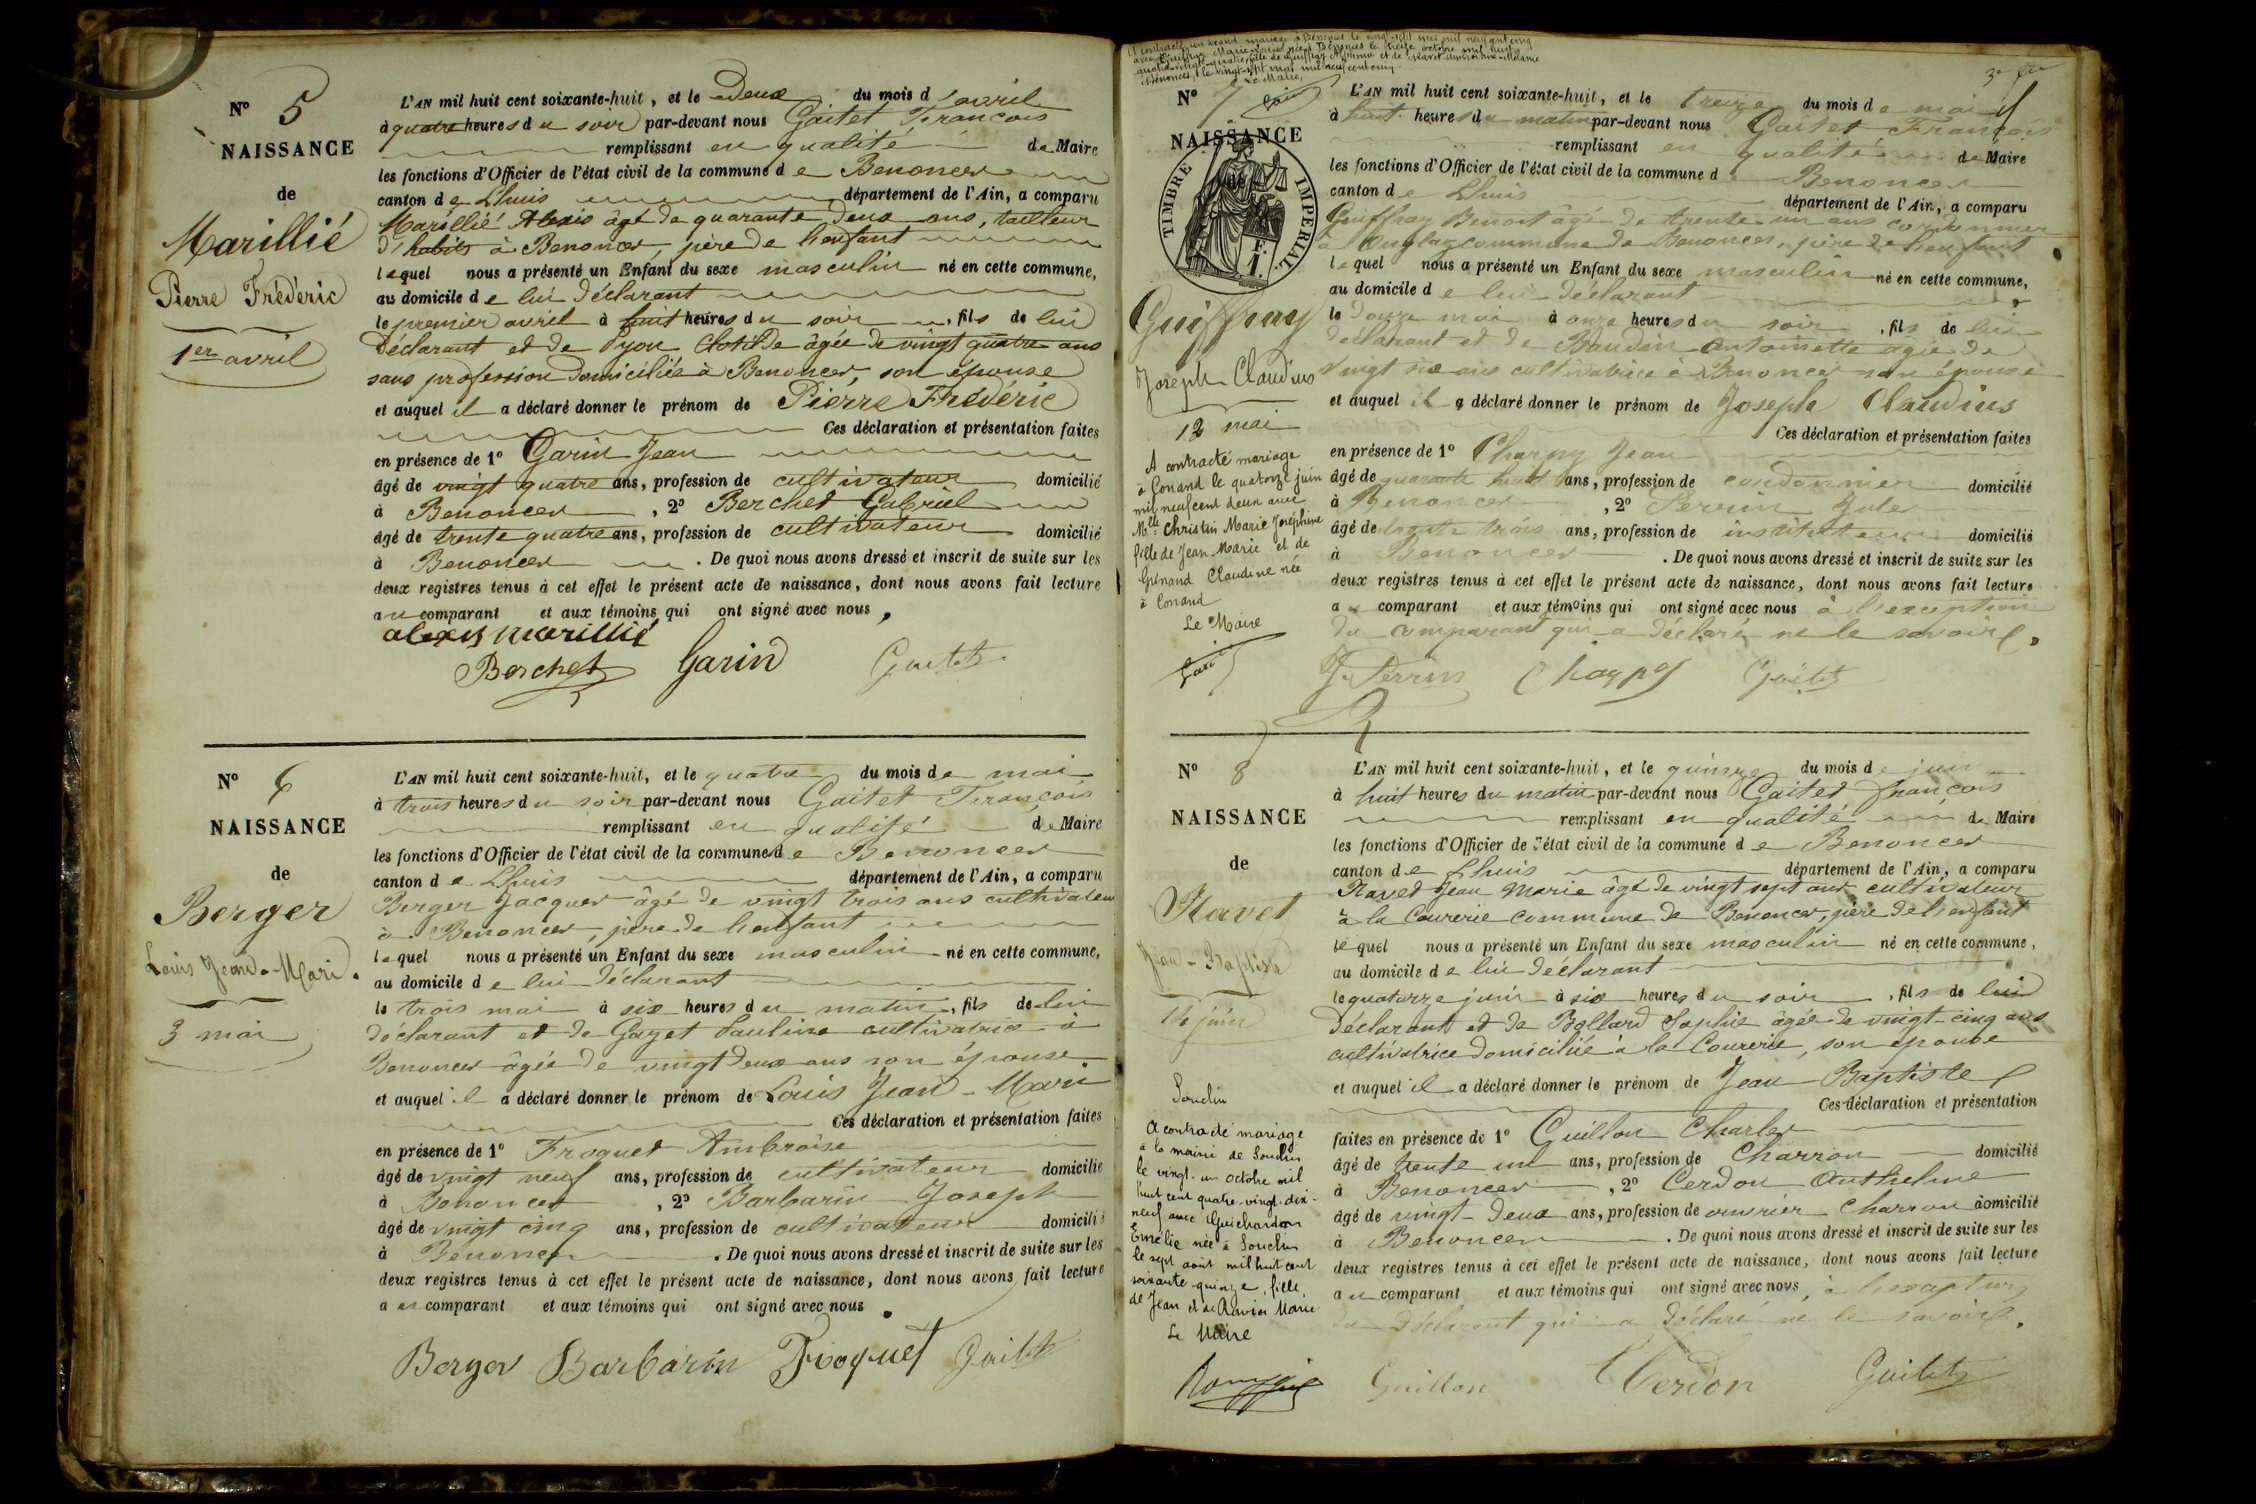 N° 5
NAISSANCE
de
Marillié
Pierre Frédéric
1er avril
L'AN mil huit cent soixante-huit, et le Deux du mois d'avril
à quatre heures du soir par-devant nous Gaitet François
remplissant en qualité de Maire
les fonctions d'Officier de l'état civil de la commune de Benonces
canton de Lhuis département de l'Ain, a comparu
Marillié Alexis âgé de quarante deux ans, tailleur
d'habits à Benonces, père de l'enfant
lequel nous a présenté un Enfant du sexe masculin né en cette commune,
au domicile de lui déclarant
le premier avril à huit heures du soir, fils de lui
déclarant et de Pyon Clotilde âgée de vingt quatre ans
sans profession domiciliée à Benonces, son épouse
et auquel il a déclaré donner le prénom de Pierre Frédéric
Ces déclaration et présentation faites
en présence de 1° Garin Jean
âgé de vingt quatre ans, profession de cultivateur domicilié
à Benonces, 2° Berchet Gabriel
âgé de trente quatre ans, profession de cultivateur domicilié
à Benonces. De quoi nous avons dressé et inscrit de suite sur les
deux registres tenus à cet effet le présent acte de naissance, dont nous avons fait lecture
au comparant et aux témoins qui ont signé avec nous.
alexis marillié
Berchet Garin Gaitet
N° 6
NAISSANCE
de
Berger
Louis Jean-Mari.
3 mai
L'AN mil huit cent soixante-huit, et le quatre du mois de mai
à trois heures du soir par-devant nous Gaitet François
remplissant en qualité de Maire
les fonctions d'Officier de l'état civil de la commune de Benonces
canton de Lhuis département de l'Ain, a comparu
Berger Jacques âgé de vingt trois ans cultivateur
à Benonces, père de l'enfant
lequel nous a présenté un Enfant du sexe masculin né en cette commune,
au domicile de lui déclarant
le trois mai à six heures du matin, fils de lui
déclarant et de Goyet Pauline cultivatrice à
Benonces âgée de vingt deux ans son épouse
et auquel il a déclaré donner le prénom de Louis Jean-Mari
Ces déclaration et présentation faites
en présence de 1° Froquet Ambroise
âgé de vingt neuf ans, profession de cultivateur domicilié
à Benonces, 2° Barbarin Joseph
âgé de vingt cinq ans, profession de cultivateur domicilié
à Benonces. De quoi nous avons dressé et inscrit de suite sur les
deux registres tenus à cet effet le présent acte de naissance, dont nous avons fait lecture
au comparant et aux témoins qui ont signé avec nous.
Berger Barbarin Froquet Gaitet
A contracté un second mariage à Bénonces le vingt-sept mai mil neuf cent cinq
avec Guiffray Marie née à Bénonces le treize octobre mil huit
cent quatre-vingt-quatre, fille de Guiffray et de
Bénonces, le vingt-sept mai mil neuf cent cinq
Le Maire,
N° 7
NAISSANCE
de
TIMBRE IMPERIAL
Guiffray
Joseph Claudius
12 mai
A contracté mariage
à Conand le quatorze juin
mil neuf cent deux avec
Mlle Christin Marie Joséphine
fille de Jean Marie et de
Grénand Claudine née
à Conand
Le Maire
L'AN mil huit cent soixante-huit, et le treize du mois de mai
à huit heures du matin par-devant nous Gaitet François
remplissant en qualité de Maire
les fonctions d'Officier de l'état civil de la commune de Benonces
canton de Lhuis département de l'Ain, a comparu
Guiffray Benoit âgé de trente un ans cordonnier
à commune de Benonces, père de l'enfant
lequel nous a présenté un Enfant du sexe masculin né en cette commune,
au domicile de lui déclarant
le douze mai à onze heures du soir, fils de lui
déclarant et de Baudin Antoinette âgée de
vingt six ans cultivatrice à Benonces son épouse
et auquel il a déclaré donner le prénom de Joseph Claudius
Ces déclaration et présentation faites
en présence de 1° Charpy Jean
âgé de quarante huit ans, profession de cordonnier domicilié
à Benonces, 2° Perrin Jules
âgé de trente trois ans, profession de instituteur domicilié
à Benonces. De quoi nous avons dressé et inscrit de suite sur les
deux registres tenus à cet effet le présent acte de naissance, dont nous avons fait lecture
au comparant et aux témoins qui ont signé avec nous à l'exception
du comparant qui a déclaré ne le savoir.
J. Perrin Charpy Gaitet
N° 8
NAISSANCE
de
Ravet
Jean-Baptiste
14 juin
Souclin
A contracté mariage
à la mairie de Souclin
le vingt-un octobre mil
huit cent quatre-vingt-dix-
neuf avec Guichardon
Emélie née à Souclin
le sept août mil huit cent
soixante-quinze, fille
de Jean et de Ravier Marie
Le Maire
L'AN mil huit cent soixante-huit, et le quinze du mois de juin
à huit heures du matin par-devant nous Gaitet François
remplissant en qualité de Maire
les fonctions d'Officier de l'état civil de la commune de Benonces
canton de Lhuis département de l'Ain, a comparu
Ravet Jean Marie âgé de vingt sept ans cultivateur
à la Courerie commune de Benonces, père de l'enfant
lequel nous a présenté un Enfant du sexe masculin né en cette commune,
au domicile de lui déclarant
le quatorze juin à six heures du soir, fils de lui
déclarant et de Bollard Sophie âgée de vingt-cinq ans
cultivatrice domiciliée à la Courerie, son épouse
et auquel il a déclaré donner le prénom de Jean-Baptiste
Ces déclaration et présentation
faites en présence de 1° Guillon Charles
âgé de trente un ans, profession de Charron domicilié
à Benonces, 2° Cerdon Anthelme
âgé de vingt-deux ans, profession de ouvrier Charron domicilié
à Benonces. De quoi nous avons dressé et inscrit de suite sur les
deux registres tenus à cet effet le présent acte de naissance, dont nous avons fait lecture
au comparant et aux témoins qui ont signé avec nous, à l'exception
du déclarant qui a déclaré ne le savoir.
Guillon Cerdon Gaitet